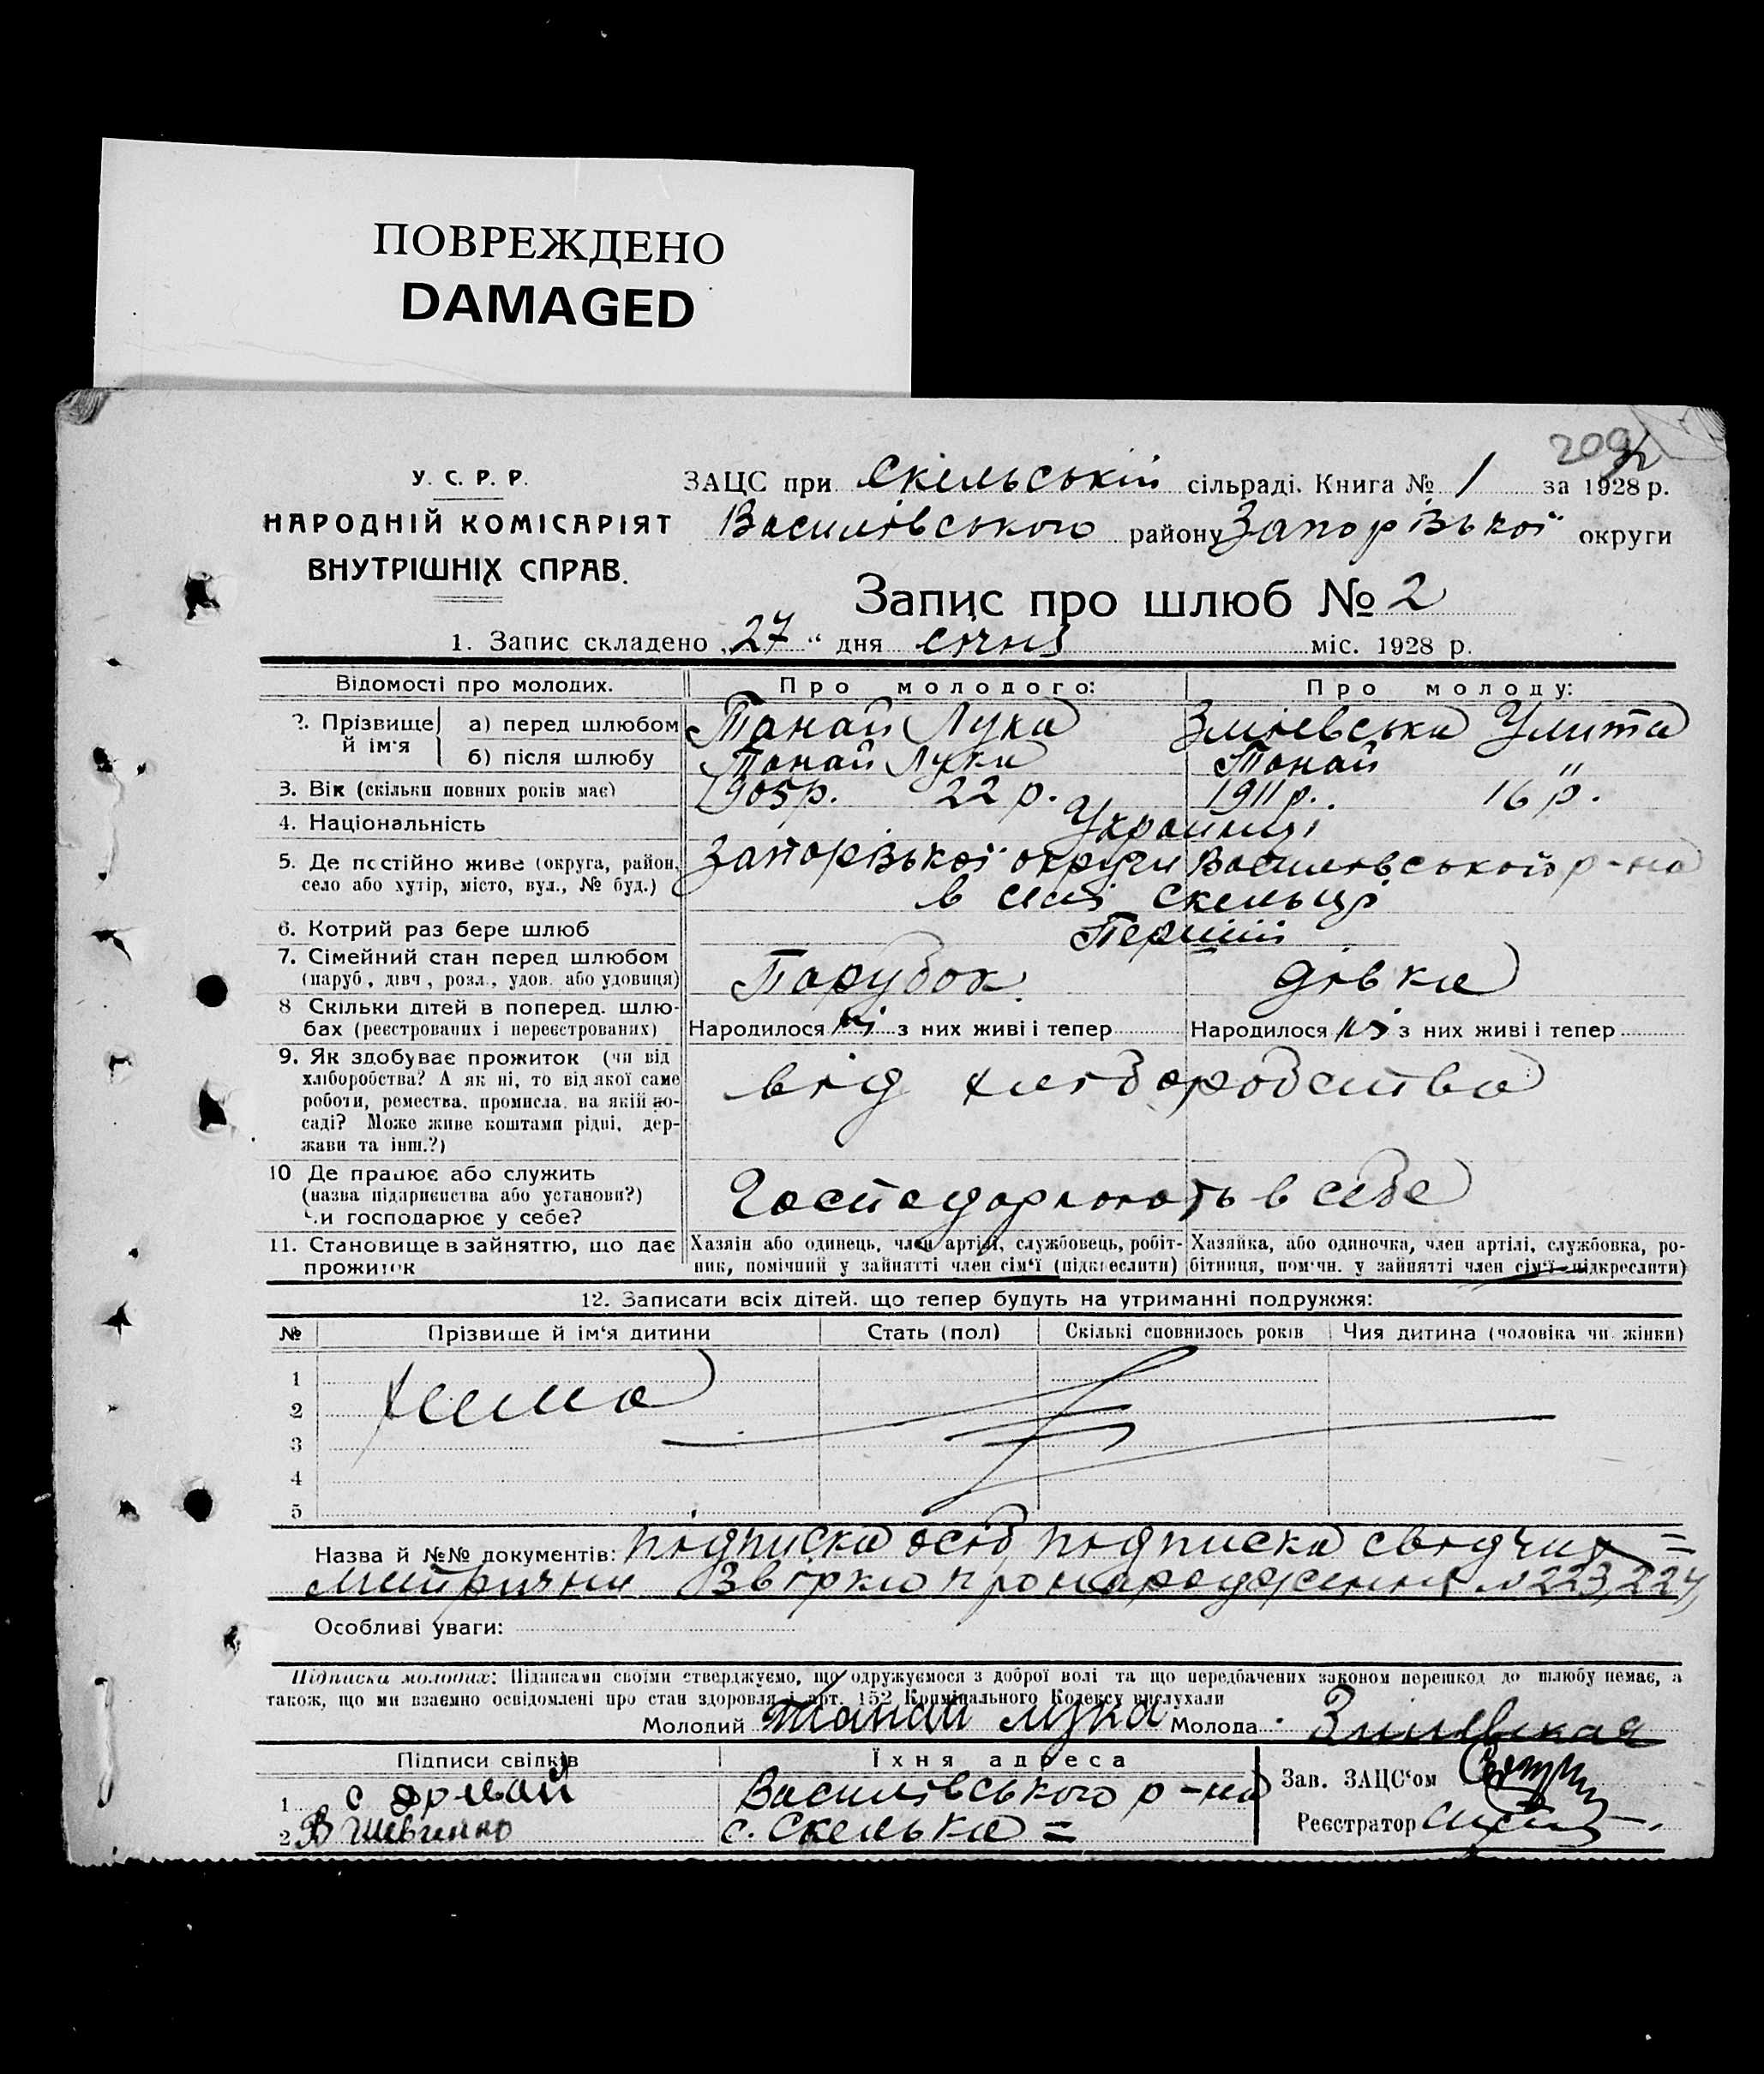 ПОВРЕЖДЕНО
DAMAGED
209
У. С. Р. Р.
НАРОДНІЙ КОМІСАРІЯТ
ВНУТРІШНІХ СПРАВ.
ЗАЦС при Скельській сільраді. Книга № 1 за 1928 р.
Василівського району Запорізької округи
Запис про шлюб № 2
1. Запис складено „27“ дня січня міс. 1928 р.
Відомості про молодих. Про молодого: Про молоду:
2. Прізвище й ім'я а) перед шлюбом Танай Лука Зміевська Улита
б) після шлюбу Танай Лука Танай "
3. Вік (скільки повних років має) 1905р. 22 р. 1911 р. 16 р.
4. Національність Українці
5. Де постійно живе (округа, район, село або хутір, місто, вул., № буд.) Запорізької округи Василівської р-на
в селі Скельці
6. Котрий раз бере шлюб Перший
7. Сімейний стан перед шлюбом (паруб, дівч, розл., удов. або удовиця) Парубок дівка
8 Скільки дітей в поперед. шлюбах (реєстрованих і нереєстрованих) Народилося ні з них живі і тепер Народилося ні з них живі і тепер
9. Як здобуває прожиток (чи від хліборобства? А як ні, то від якої саме роботи, ремества, промисла, на якій посаді? Може живе коштами рідні, держави та інш.?) від хліборобства
10 Де працює або служить (назва підприєиства або установи?) Чи господарює у себе? Господарюють в себе
11. Становище в зайняттю, що дає прожиток
Хазяїн або одинець, член артілі, службовець, робітник, помічний у зайнятті член сім'ї (підкреслити)
Хазяйка, або одиночка, член артілі, службовка, робітниця, помічн. у зайнятті член сім'ї підкреслити)
12. Записати всіх дітей. що тепер будуть на утриманні подружжя:
№ Прізвище й ім'я дитини Стать (пол) Скількі сповнилось років Чия дитина (чоловіка чи жінки)
1
2 Нема
3
4
5
Назва й №№ документів: підписка осіб підписка свідчих =
метричні Звірка про народження № 223, 224,
Особливі уваги:
Підписки молодих: Підписами своїми стверджуємо, що одружуємося з доброї волі та що передбачених законом перешкод до шлюбу немає, а
також, що ми взаємно освідомлені про стан здоровля і арт. 152 Кримінального Кодексу вислухали
Молодий Танай Лука Молода Зміевская
Підписи свідків Їхня адреса
1 Василівського р-на
2 В Шевченко с. Скелька =
Зав. ЗАЦС'ом
Реєстратор